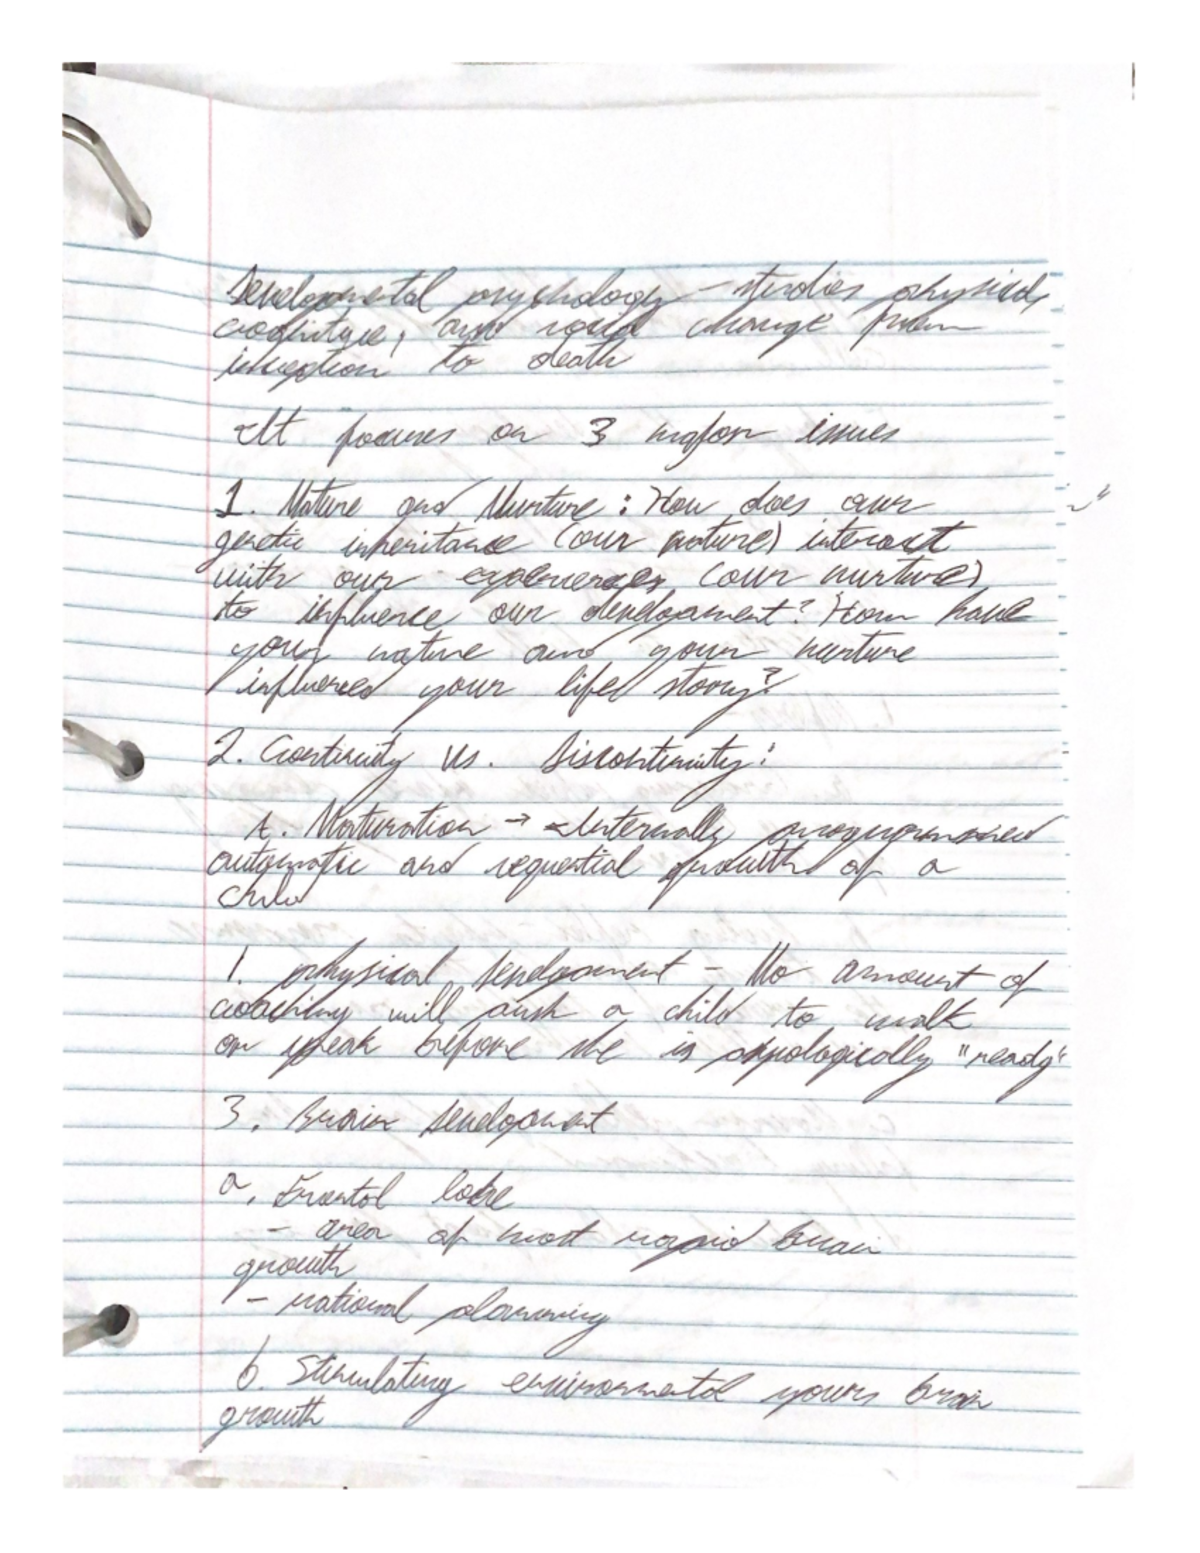 Developmental psychology - studies physical,
cognitive, and social change from
inception to death
It focuses on 3 major issues
1. Nature and Nurture : How does our
genetic inheritance (our nature) interact
with our experiences (our nurture)
to influence our development? How have
your nature and your nurture
influenced your life story?
2. Continuity vs. Discontinuity:
A. Maturation → Internally programmed
automatic and sequential growth of a
child
1. physical development - No amount of
coaching will push a child to walk
or speak before she is "ready"
3. Brain Development
a. Frontal lobe
- area of most rapid brain
growth
- rational planning
b. Stimulating environmental yours brain
growth